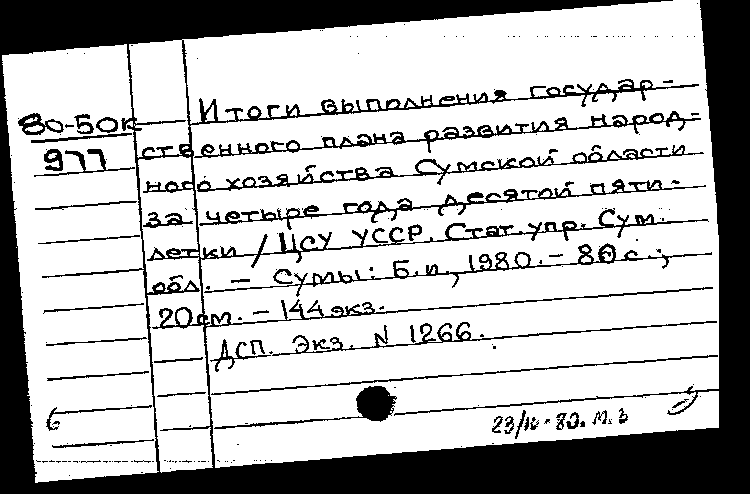 80-50к
977
Итоги выполнения государ-
ственного плана развития народ-
ного хозяйства Сумской области
за четыре года десятой пяти-
летки / ЦСУ УССР. Стат. упр. Сум.
обл. – Сумы: Б.и., 1980. – 80 с.;
20 см. – 144 экз.
ДСП. Экз. N 1266.
6